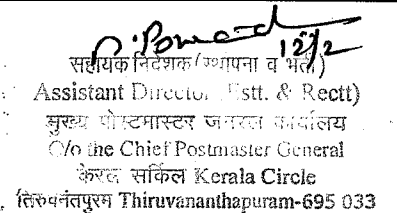 12/2
सहायक निदेशक (स्थापना व भर्ती)
Assistant Director (Estt. & Rectt)
मुख्य पोस्टमास्टर जनरल कार्यालय
O/o the Chief Postmaster General
केरल सर्किल Kerala Circle
तिरुवनंतपुरम Thiruvananthapuram-695 033